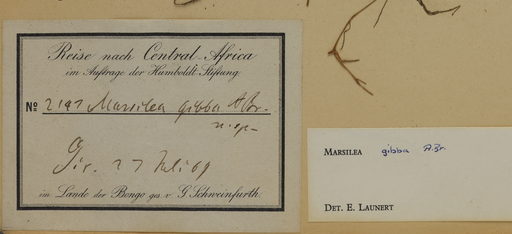 Reise nach Central-Africa
im Auftrage der Humboldt-Stiftung.
No 2197 Marsilea gibba A Br.
n. sp.
Gir. 27 Juli 69
im Lande der Bongo ges. v. G. Schweinfurth.
MARSILEA gibba A.Br.
DET. E. LAUNERT